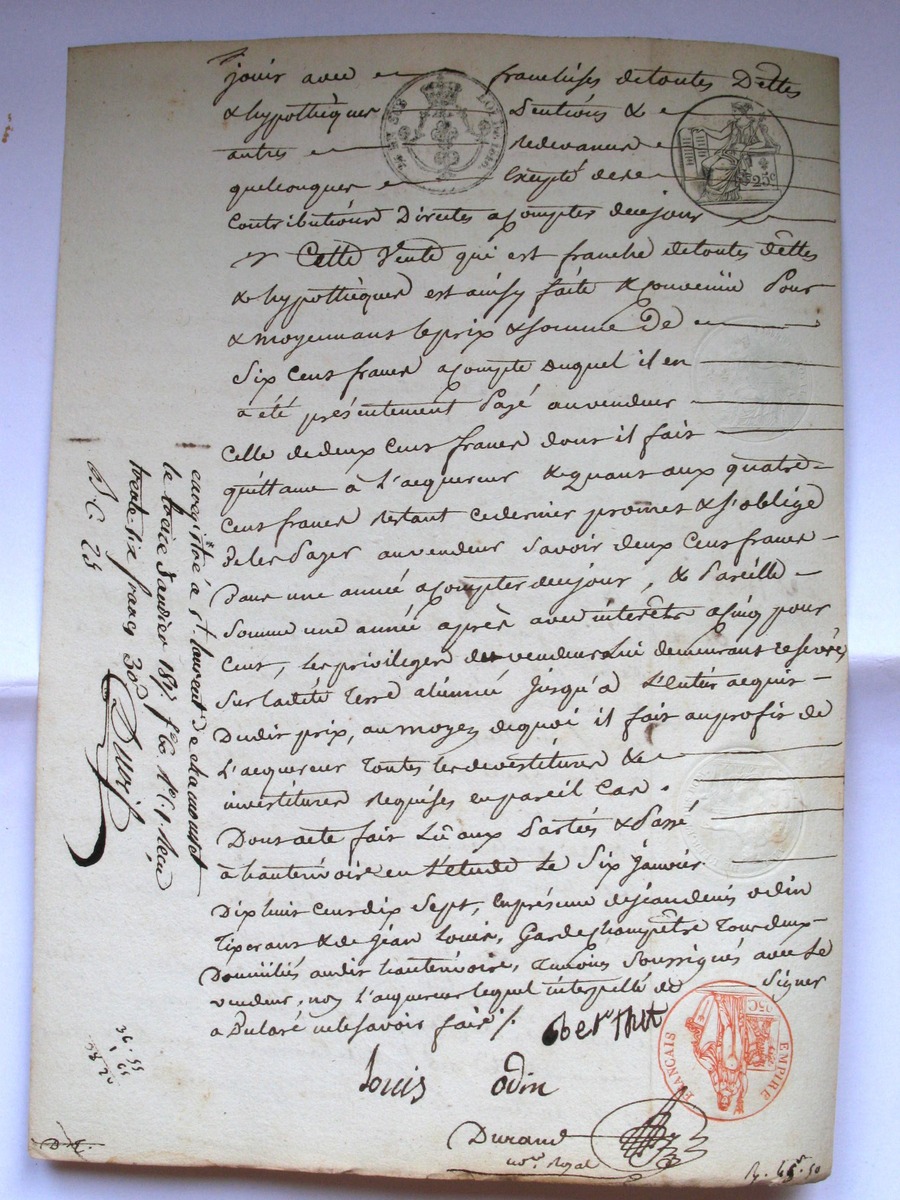 jouir avec franchises detoutes Dettes
& hypothèques Pentions &
autres redevances
quelconques Excepté de
Contributions Directes acompter dece jour
Cette Vente qui est franche detoutes dettes
& hypothèques est ainsy faite & convenüe Pour
& moyennans leprix & somme De
Six Cens francs acompte duquel il en
a été présentement Payé auvendeur
Celle de deux Cens francs dons il fait
quittance à L'acquereur & quans aux quatre
Cens francs restant cedernier promes & s'oblige
de les Payer auvendeur Savoir deux Cens francs
Dans une année acompter dece jour, & Pareille
Somme une année après avec interêts acinq pour
Cens, les privileges du vendeur lui demeurans reservés
Sur ladite Terre alienné Jusqu'à L'entier acquis
Dudit prix, au moyen dequoi il fait auprofit de
L'acquereur Toutes les devestitures &
investitures Requises en pareil Cas.
Dons acte fait Lû aux Parties & Passé
à hauterivoire en L'etude Le Six Janvier
Dix huit cens dix Sept, en présence de Jean denis odin
Tixerans & de Jean Louis, Garde champêtre Tous deux
Domiciliés audit hauterivoire, Temoins Soussignés avec Le
vendeur, non L'acquereur lequel interpellé de Signer
a Declaré ne le savoir faire
berthet
Louis odin
Durand
not. Royal
enregistré à St. laurent de chamousset
le treize Janvier 1817 fo. 60 Reçu
trente six francs 30
D. C. 25
36. 55
1 65
38. 20
25c
EMPIRE FRANCAIS
05C